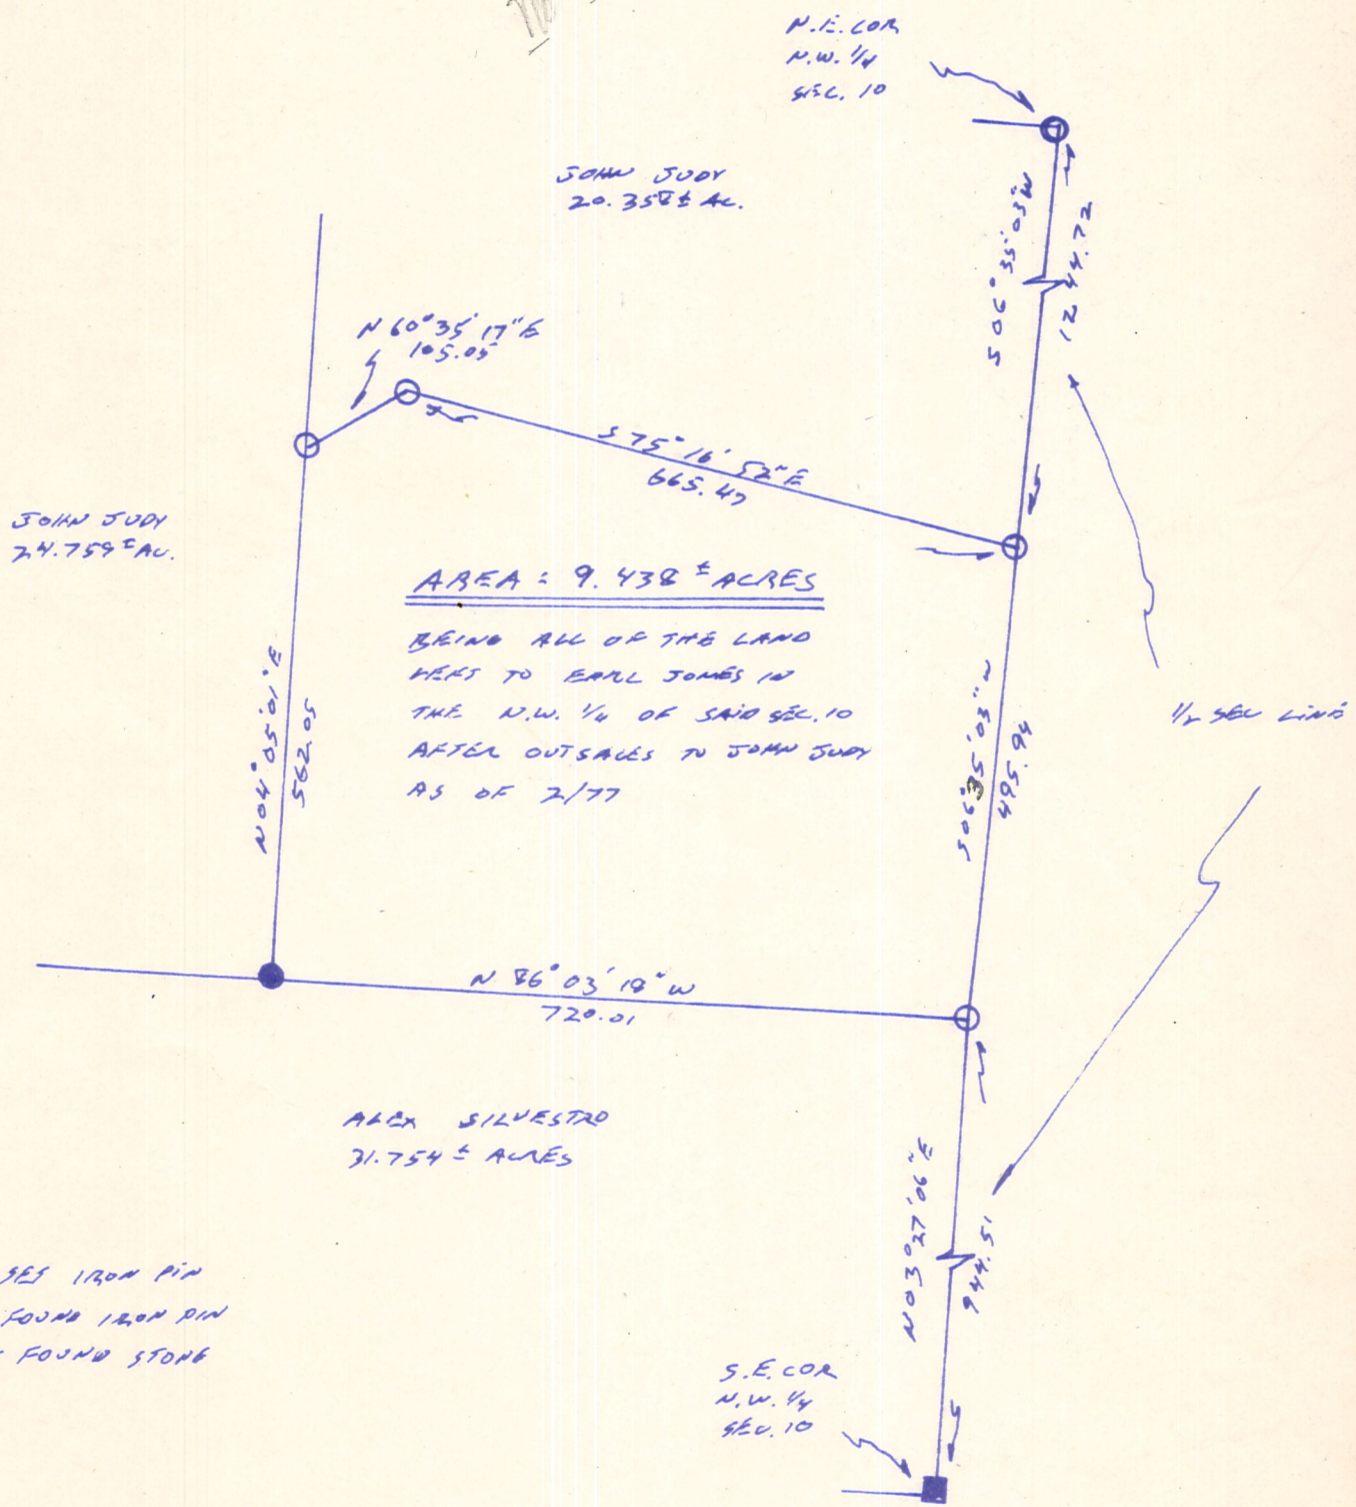 N.E. COR
N.W. 1/4
SEC. 10
JOHN JUDY
20.358± AC.
S 06° 35' 03" W
1244.72
N 60° 35' 17" E
105.05
S 75° 16' 52" E
665.47
JOHN JUDY
24.759± AC.
AREA = 9.438± ACRES
BEING ALL OF THE LAND
LEFT TO EARL JONES IN
THE N.W. 1/4 OF SAID SEC. 10
AFTER OUTSALES TO JOHN JUDY
AS OF 2/77
N 04° 05' 01" E
562.05
S 06° 35' 03" W
495.94
1/2 SEC LINE
N 86° 03' 18" W
720.01
ALEX SILVESTRO
31.754± ACRES
N 03° 27' 06" E
944.51
SET IRON PIN
FOUND IRON PIN
FOUND STONE
S.E. COR
N.W. 1/4
SEC. 10